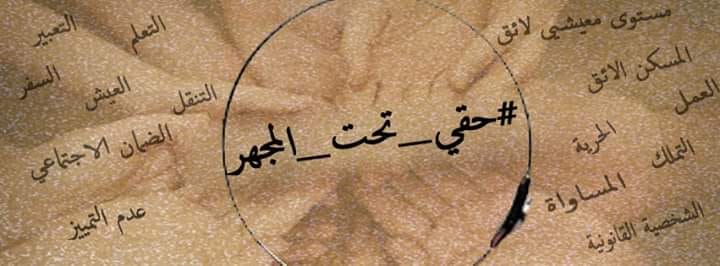 مستوى معيشي لائق
المسكن الائق
العمل
الحرية
التملك
المساواة
الشخصية القانونية
#حقي_تحت_المجهر
التعلم
التعبير
السفر
العيش
التنقل
الضمان الاجتماعي
عدم التمييز